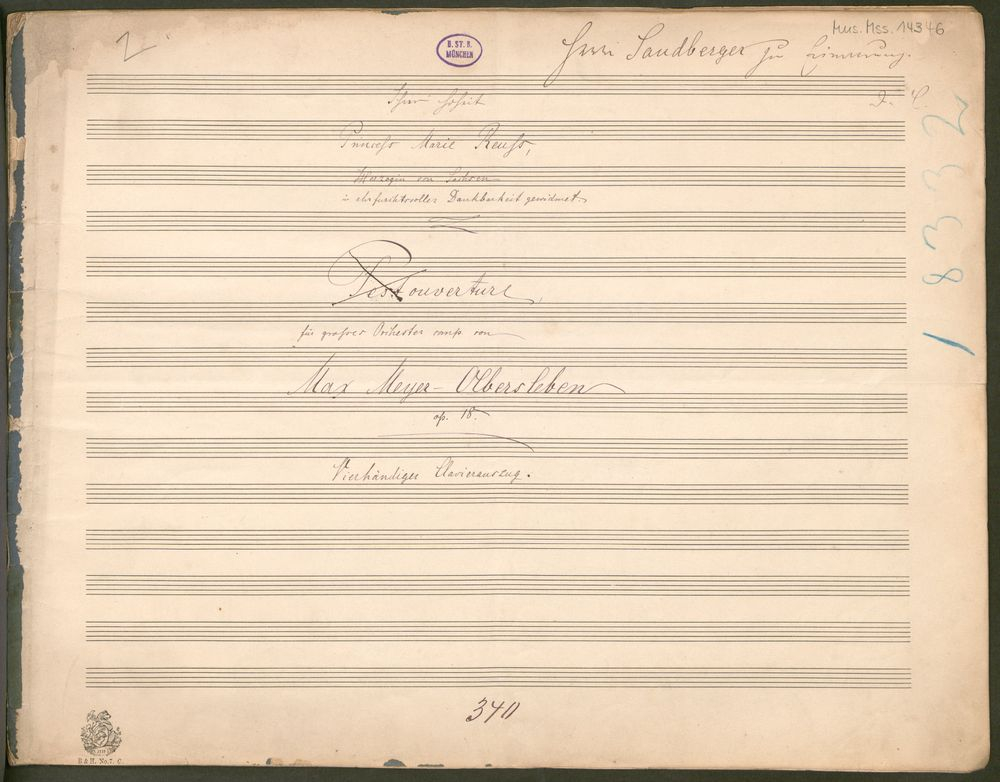 Mus. Mss. 14346
B. ST. B.
MÜNCHEN
Herrn Sandberger zu Erinnerung.
Ihrer Hoheit
Princess Marie Reuss,
Herzogin von Sachsen
in ehrfurchtsvoller Dankbarkeit gewidmet.
Festouverture,
für grosses Orchester comp von
Max Meyer-Olbersleben
op. 18.
Vierhändiger Clavierauszug.
18332
340
B & H. No. 7. C.